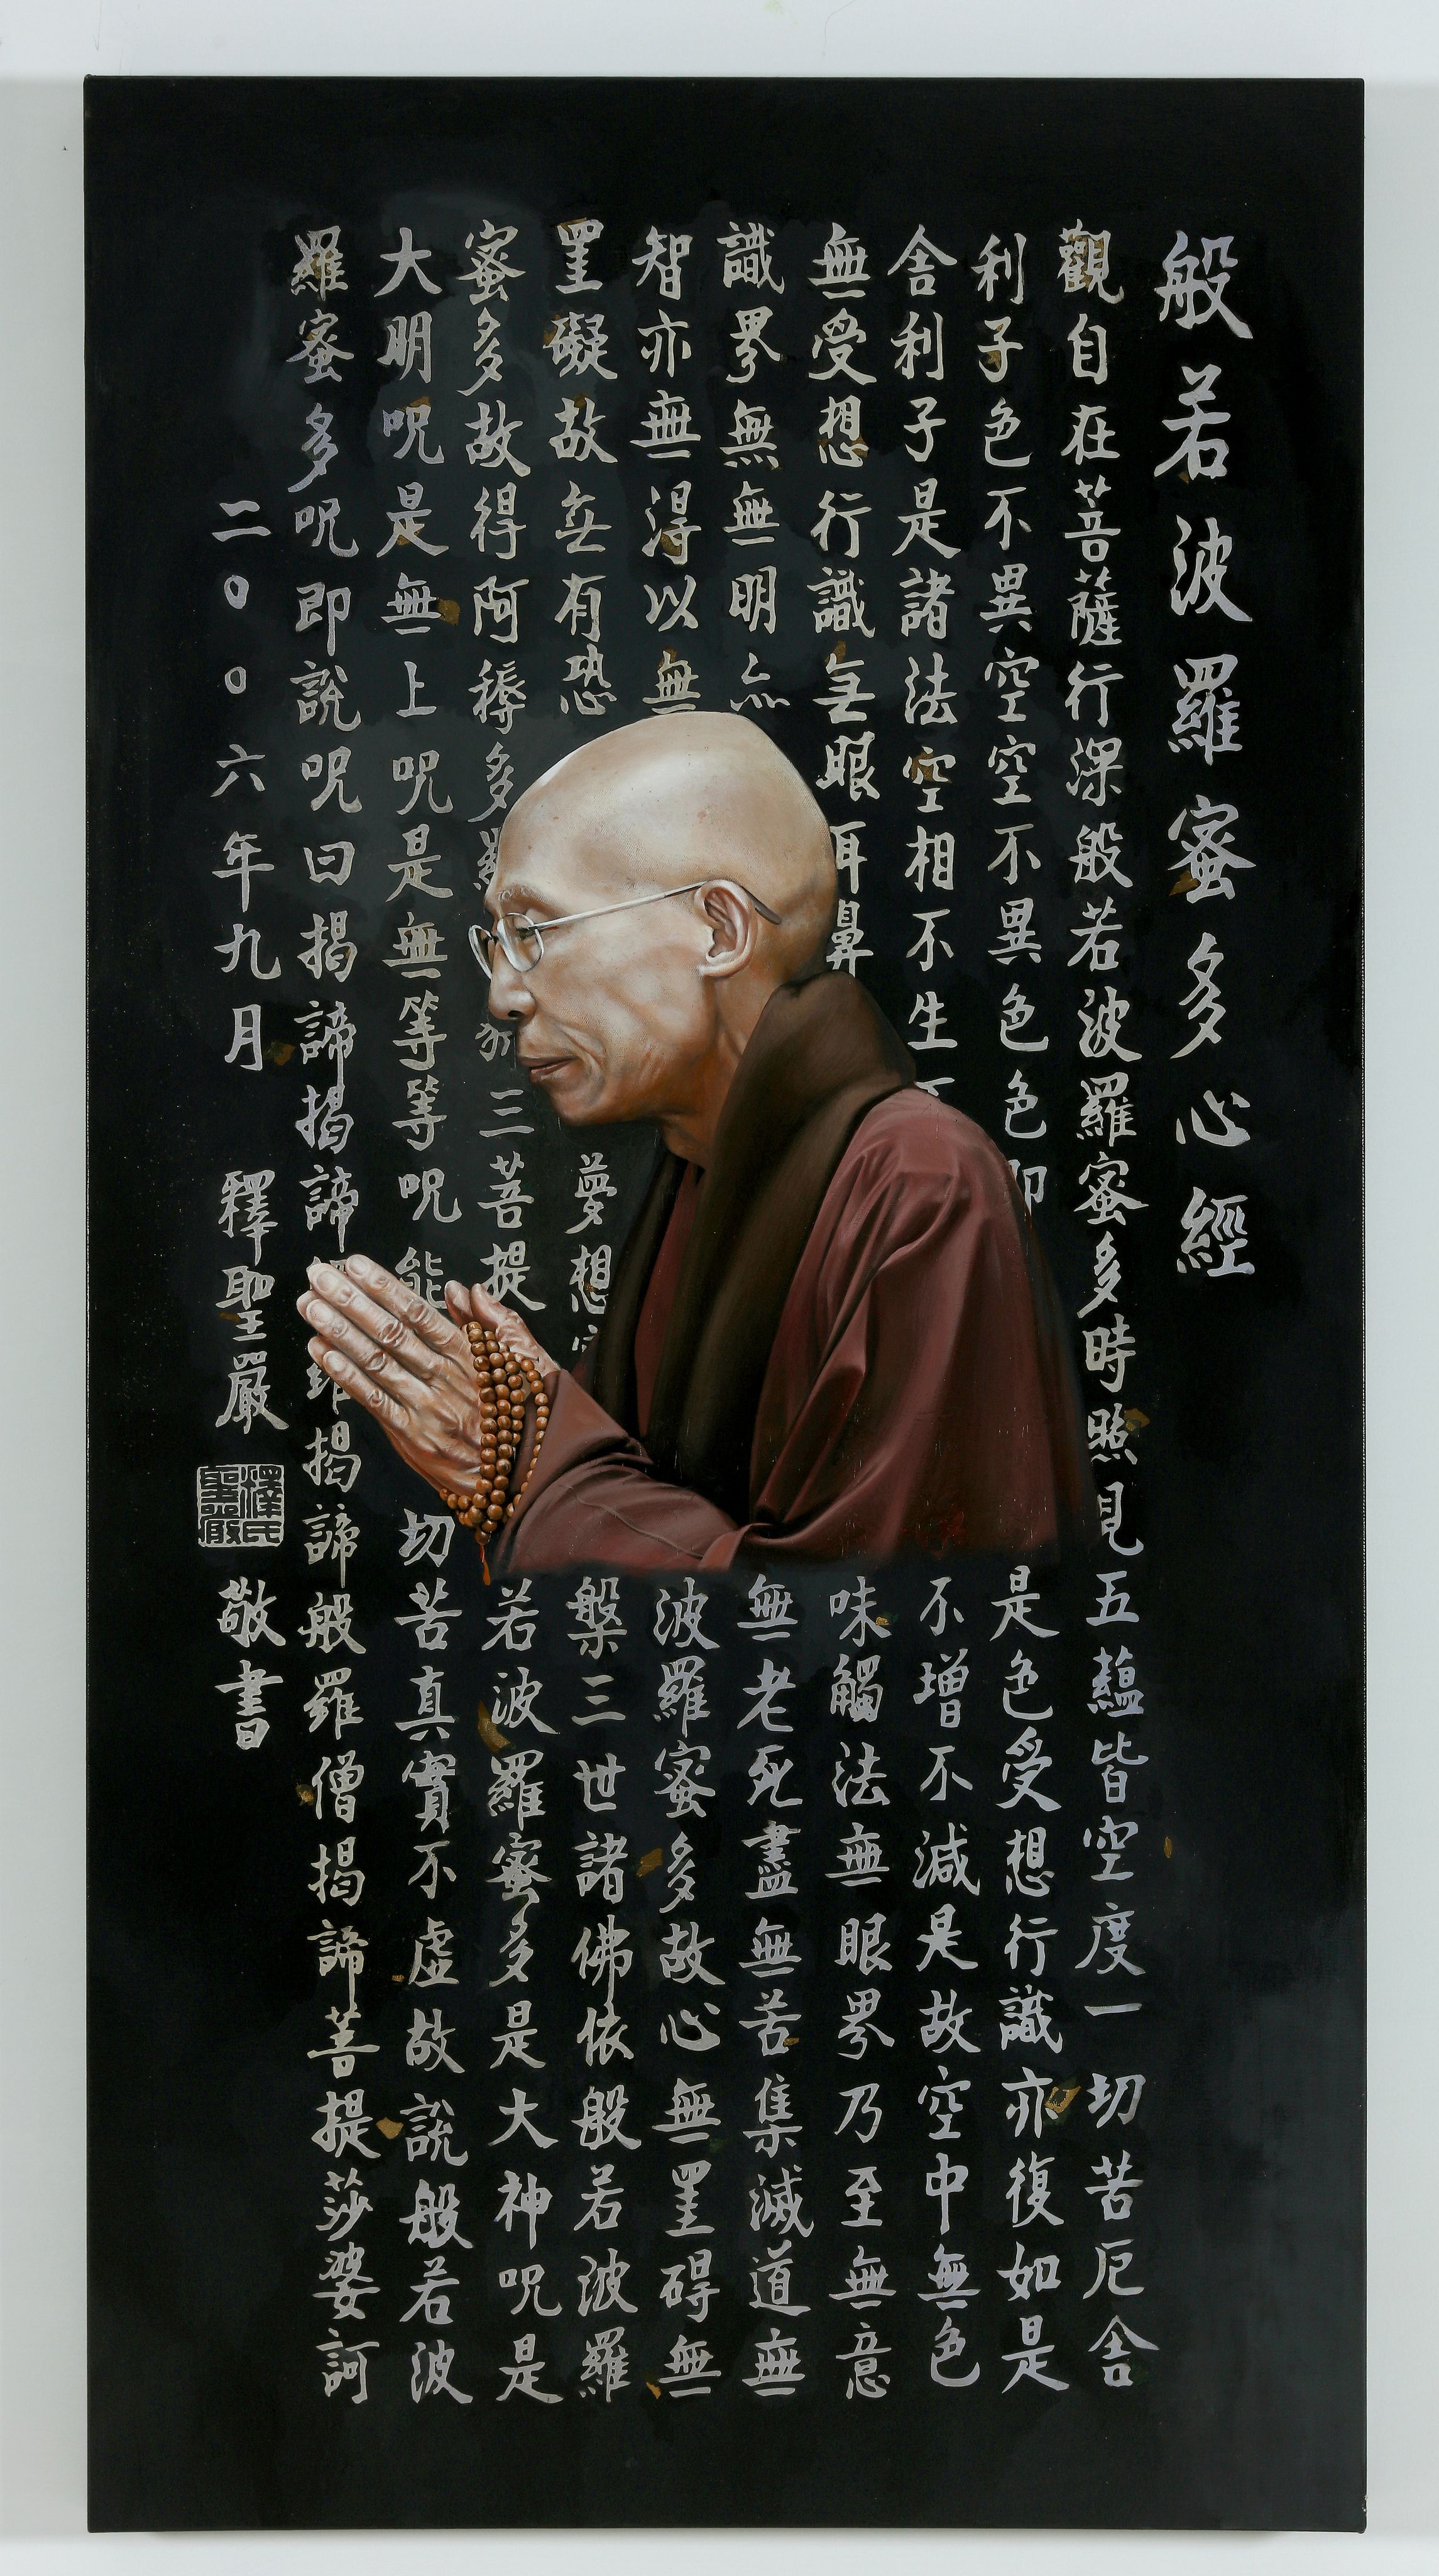 般若波羅蜜多心經
觀自在菩薩行深般若波羅蜜多時照見五蘊皆空度一切苦厄舍
利子色不異空空不異色色即是色受想行識亦復如是
舍利子是諸法空相不生不增不減是故空中無色
無受想行識無眼耳鼻味觸法無眼界乃至無意
識界無無明亦無老死盡無苦集滅道無
智亦無得以無波羅蜜多故心無罣碍無
罣礙故無有恐夢想槃三世諸佛依般若波羅
蜜多故得阿耨多三菩提若波羅蜜多是大神呪是
大明呪是無上呪是無等等呪能切苦真實不虛故說般若波
羅蜜多呪即說呪曰揭諦揭諦羅揭諦般羅僧揭諦菩提莎婆訶
二〇〇六年九月 釋聖嚴 敬書
釋氏聖嚴